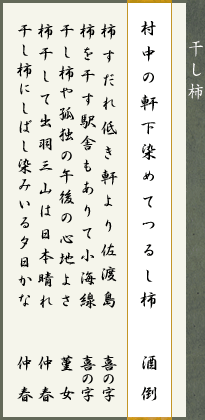 干し柿
村中の軒下染めてつるし柿　酒倒
柿すだれ低き軒より佐渡島　喜の字
柿を干す駅舎もありて小海線　喜の字
干し柿や孤独の午後の心地よさ　菫女
柿干して出羽三山は日本晴れ　仲春
干し柿にしばし染みいる夕日かな　仲春